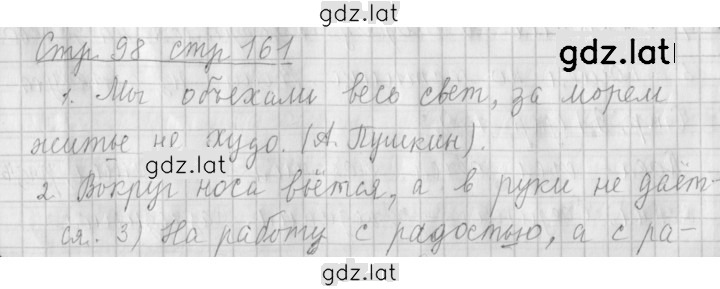 gdz.lat
Стр 98 стр 161
gdz.lat
1. Мы объехали весь свет, за морем
житье не худо. (А. Пушкин).
gdz.lat
2 Вокруг носа вьётся, а в руки не даёт-
ся. 3) На работу с радостью, а с ра-
gdz.lat